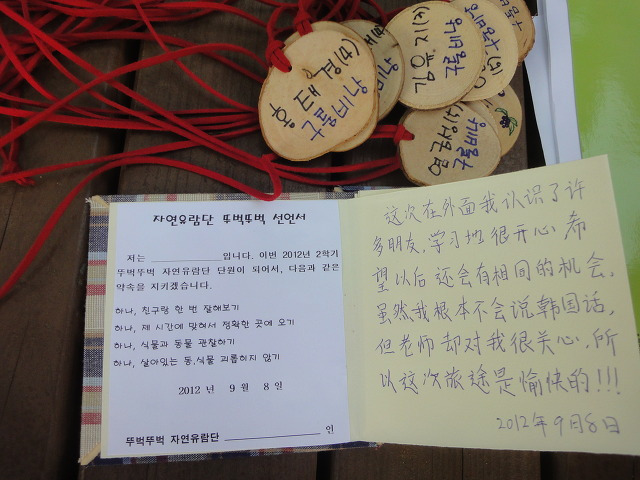 홍태경(4)
구름비나무
김용기(4)
구름비
자연유람단 뚜벅뚜벅 선언서
저는 ____________입니다. 이번 2012년 2학기
뚜벅뚜벅 자연유람단 단원이 되어서, 다음과 같은
약속을 지키겠습니다.
하나, 친구랑 한 번 잘해보기
하나, 제 시간에 맞춰서 정확한 곳에 오기
하나, 식물과 동물 관찰하기
하나, 살아있는 동,식물 괴롭히지 않기
2012 년 9 월 8 일
뚜벅뚜벅 자연유람단 ________________ 인
这次在外面我认识了许
多朋友,学习地很开心.希
望以后还会有相同的机会.
虽然我根本不会说韩国话,
但老师却对我很关心.所
以这次旅途是愉快的!!!
2012年9月8日